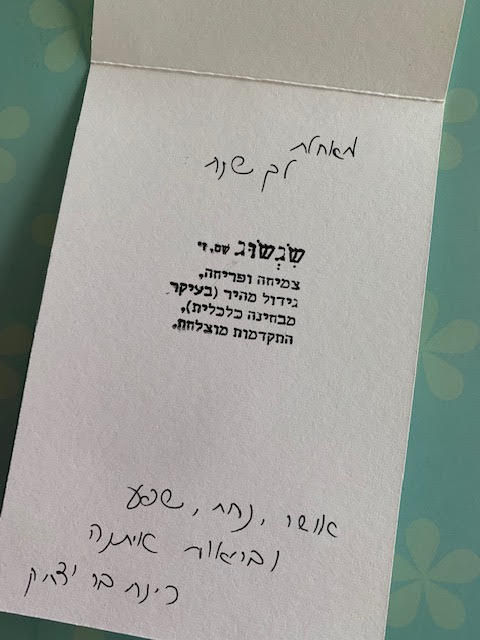 מאחלת
לך שנת
שִׂגְשׂוּג שם, ז׳
צמיחה ופריחה,
גידול מהיר (בעיקר
מבחינה כלכלית),
התקדמות מוצלחת.
אושר, נחת, שפע
ובריאות איתנה
רינת בר יצחק